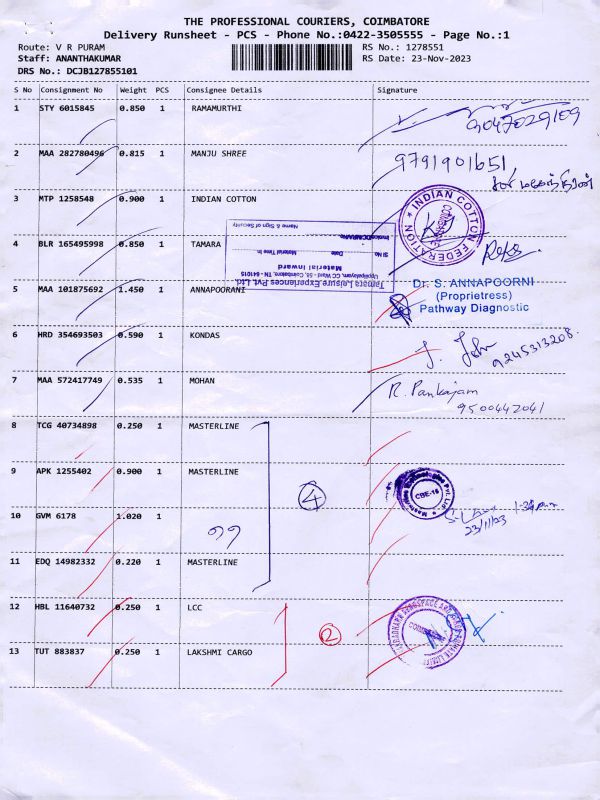 THE PROFESSIONAL COURIERS, COIMBATORE
Delivery Runsheet - PCS - Phone No.:0422-3505555 - Page No.:1
Route: V R PURAM
RS No.: 1278551
Staff: ANANTHAKUMAR
RS Date: 23-Nov-2023
DRS No.: DCJB127855101
S No Consignment No Weight PCS Consignee Details Signature
1 STY 6015845 0.850 1 RAMAMURTHI
9047029109
2 MAA 282780496 0.815 1 MANJU SHREE
9791901651
3 MTP 1258548 0.900 1 INDIAN COTTON
INDIAN COTTON FEDERATION
COIMBATORE
4 BLR 165495998 0.850 1 TAMARA
Tamara Leisure Experiences Pvt. Ltd
Uppilipalayam, CC Ward, 55, Coimbatore, TN - 641015
Material Inward
Sl No Date Material Time In
Invoice/DC/MR/No
Name & Sign of Security
5 MAA 101875692 1.450 1 ANNAPOORANI
Dr. S. ANNAPOORNI
(Proprietress)
Pathway Diagnostic
6 HRD 354693503 0.590 1 KONDAS
J. John
9245313208.
7 MAA 572417749 0.535 1 MOHAN
R. Pankajam
9500442041
8 TCG 40734898 0.250 1 MASTERLINE
9 APK 1255402 0.900 1 MASTERLINE
4
CBE-15
10 GVM 6178 1.020 1
23/11/23
11 EDQ 14982332 0.220 1 MASTERLINE
12 HBL 11640732 0.250 1 LCC
2
13 TUT 883837 0.250 1 LAKSHMI CARGO